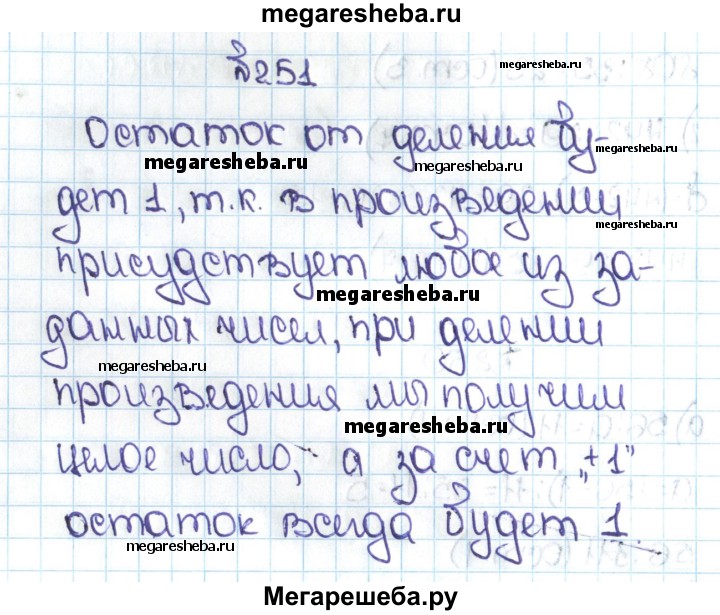 megaresheba.ru
№251
megaresheba.ru
Остаток от деления бу-
megaresheba.ru
megaresheba.ru
megaresheba.ru
дет 1, т.к. в произведении
megaresheba.ru
присудствует любое из за-
megaresheba.ru
данных чисел, при делении
megaresheba.ru
произведения мы получим
megaresheba.ru
целое число, а за счет „+1"
остаток всегда будет 1
megaresheba.ru
megaresheba.ru
Мегарешеба.ру